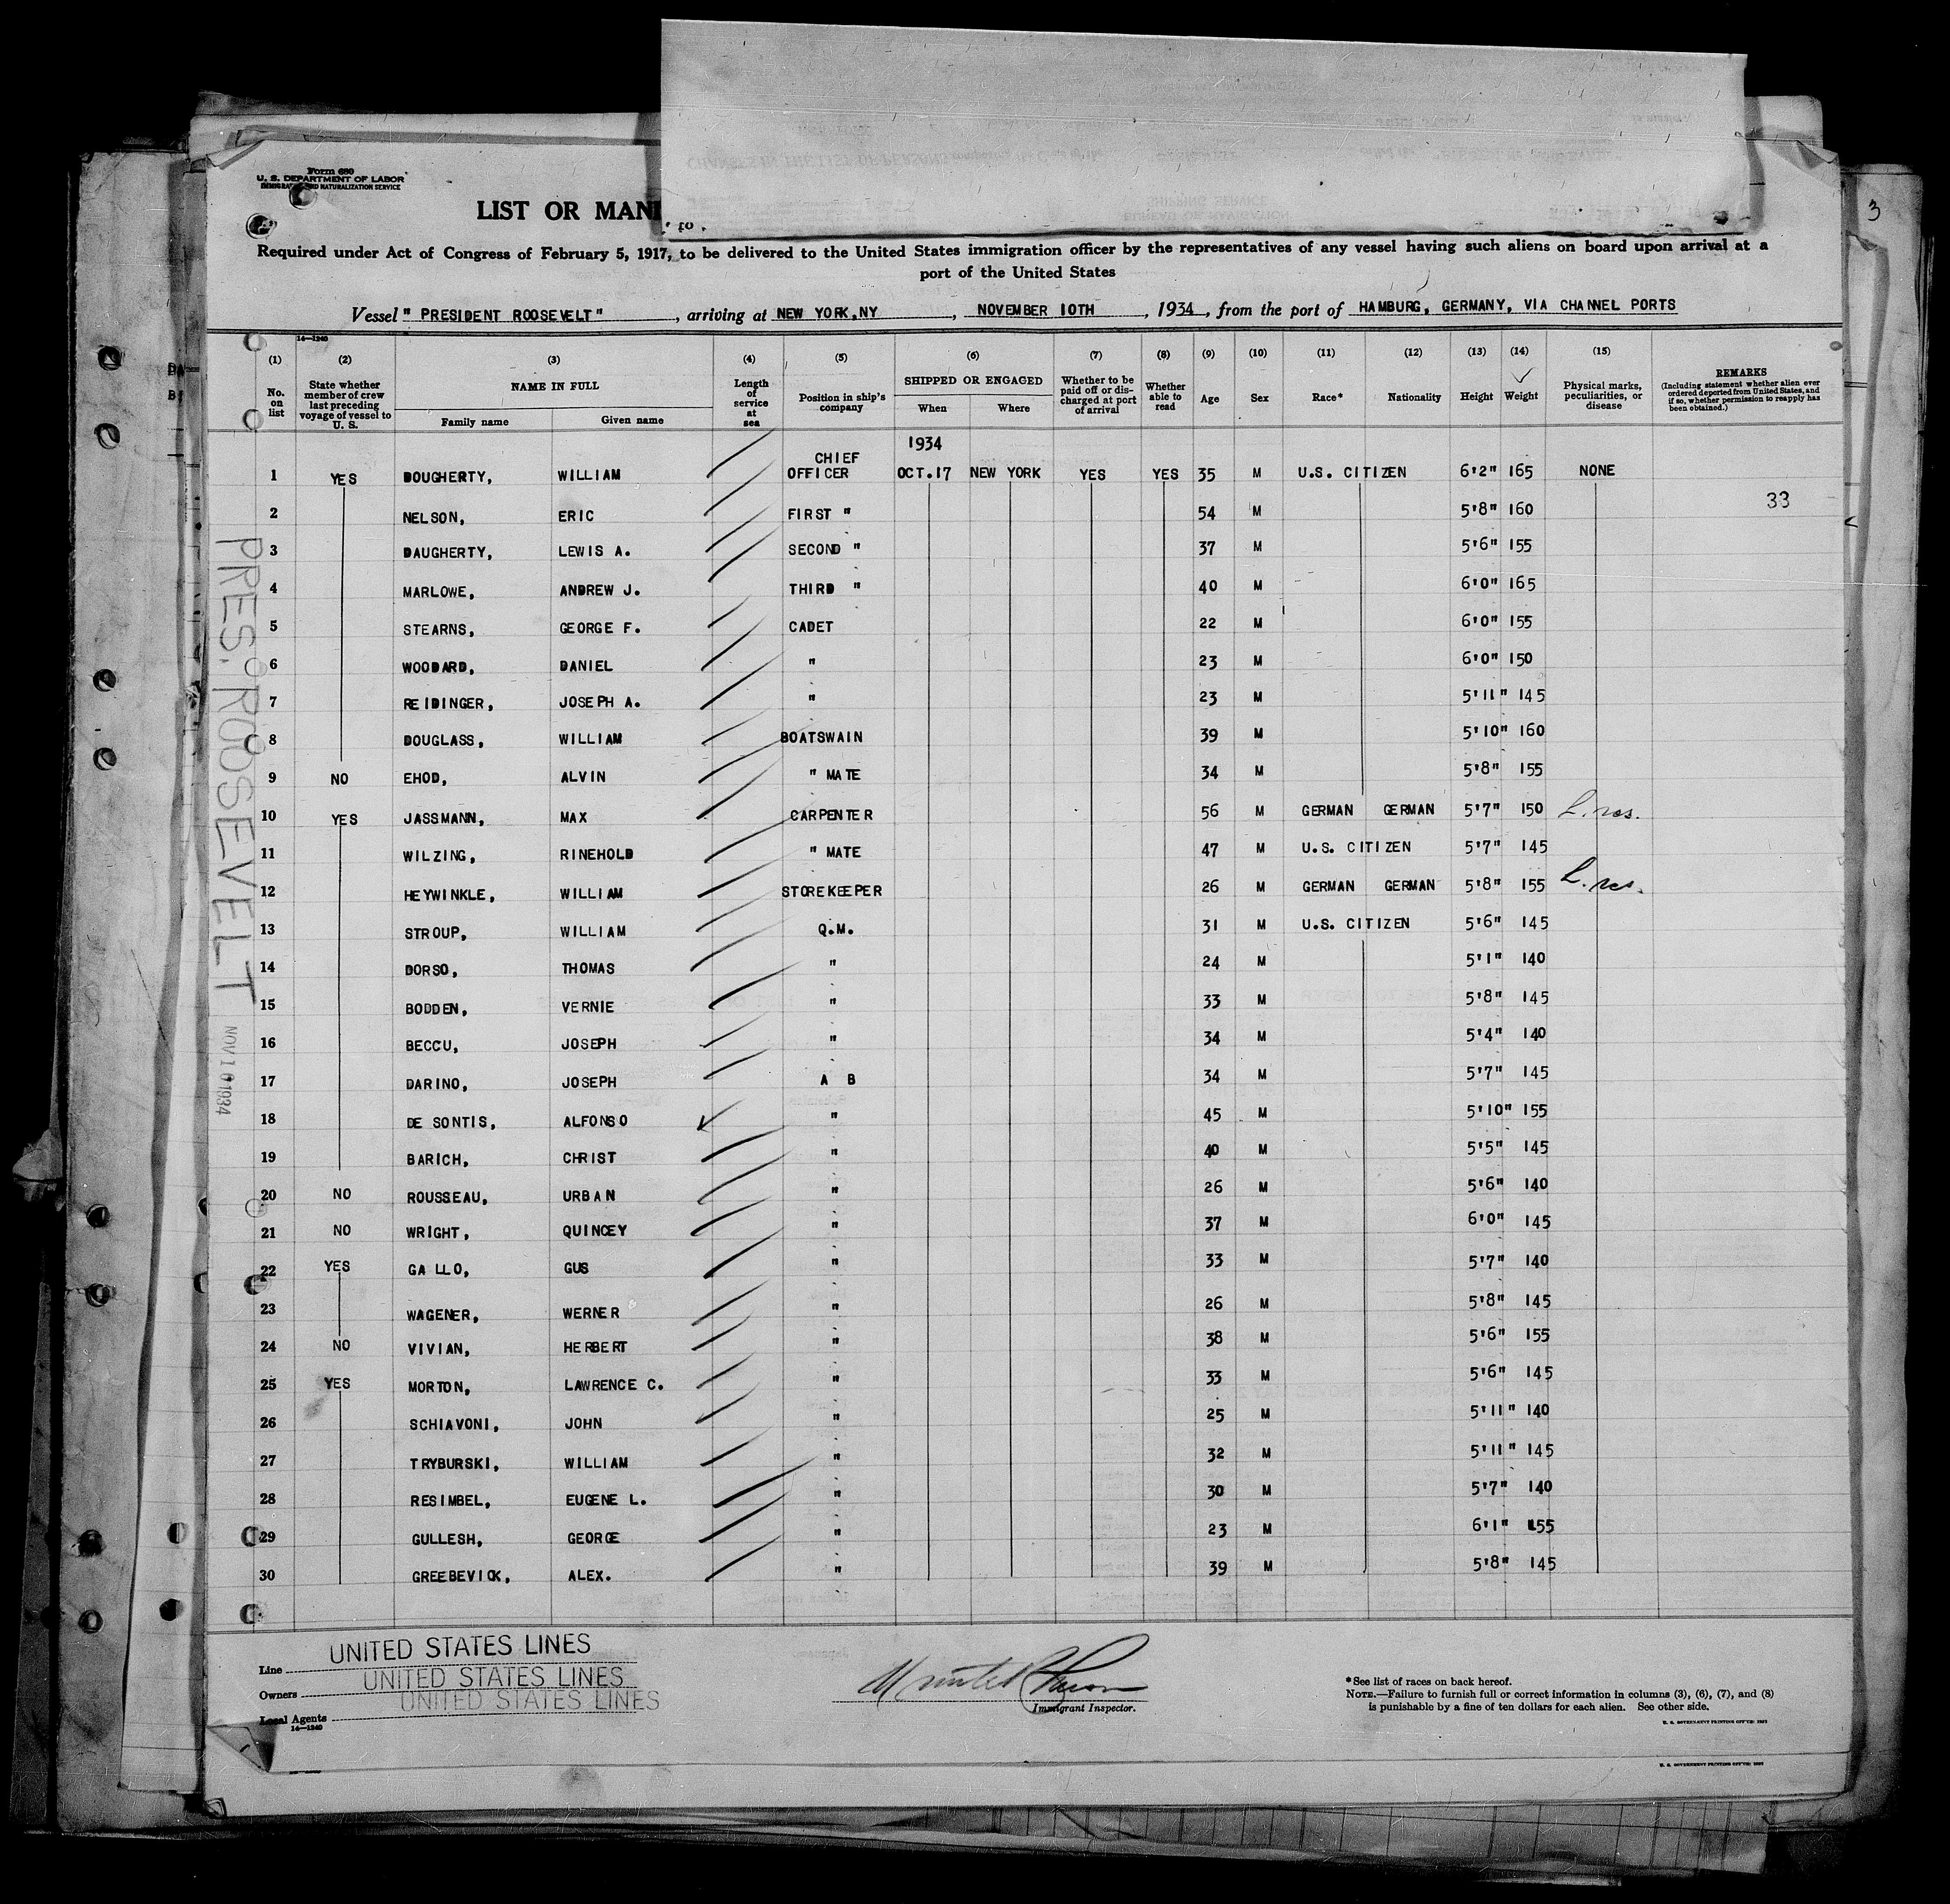 3
Form 680
U. S. DEPARTMENT OF LABOR
IMMIGRATION AND NATURALIZATION SERVICE
LIST OR MANI
Required under Act of Congress of February 5, 1917, to be delivered to the United States immigration officer by the representatives of any vessel having such aliens on board upon arrival at a
port of the United States
Vessel " PRESIDENT ROOSEVELT" , arriving at NEW YORK,NY , NOVEMBER 10TH , 1934 , from the port of HAMBURG, GERMANY, VIA CHANNEL PORTS
14—1240
(1) (2) (3) (4) (5) (6) (7) (8) (9) (10) (11) (12) (13) (14) (15)
No. on list State whether member of crew last preceding voyage of vessel to U. S. NAME IN FULL Family name Given name Length of service at sea Position in ship's company SHIPPED OR ENGAGED When Where Whether to be paid off or discharged at port of arrival Whether able to read Age Sex Race* Nationality Height Weight Physical marks, peculiarities, or disease REMARKS (Including statement whether alien ever ordered deported from United States, and if so, whether permission to reapply has been obtained.)
1934
1 YES DOUGHERTY, WILLIAM CHIEF OFFICER OCT.17 NEW YORK YES YES 35 M U.S. CITIZEN 6'2" 165 NONE
33
2 NELSON, ERIC FIRST " 54 M 5'8" 160
3 DAUGHERTY, LEWIS A. SECOND " 37 M 5'6" 155
4 MARLOWE, ANDREW J. THIRD " 40 M 6'0" 165
5 STEARNS, GEORGE F. CADET 22 M 6'0" 155
6 WOODARD, DANIEL " 23 M 6'0" 150
7 REIDINGER, JOSEPH A. " 23 M 5'11" 145
8 DOUGLASS, WILLIAM BOATSWAIN 39 M 5'10" 160
9 NO EHOD, ALVIN " MATE 34 M 5'8" 155
10 YES JASSMANN, MAX CARPENTER 56 M GERMAN GERMAN 5'7" 150 L. res.
11 WILZING, RINEHOLD " MATE 47 M U.S. CITIZEN 5'7" 145
12 HEYWINKLE, WILLIAM STOREKEEPER 26 M GERMAN GERMAN 5'8" 155 L. res.
13 STROUP, WILLIAM Q.M. 31 M U.S. CITIZEN 5'6" 145
14 DORSO, THOMAS " 24 M 5'1" 140
15 BODDEN, VERNIE " 33 M 5'8" 145
16 BECCU, JOSEPH " 34 M 5'4" 140
17 DARINO, JOSEPH A B 34 M 5'7" 145
18 DE SONTIS, ALFONSO " 45 M 5'10" 155
19 BARICH, CHRIST " 40 M 5'5" 145
20 NO ROUSSEAU, URBAN " 26 M 5'6" 140
21 NO WRIGHT, QUINCEY " 37 M 6'0" 145
22 YES GALLO, GUS " 33 M 5'7" 140
23 WAGENER, WERNER " 26 M 5'8" 145
24 NO VIVIAN, HERBERT " 38 M 5'6" 155
25 YES MORTON, LAWRENCE C. " 33 M 5'6" 145
26 SCHIAVONI, JOHN " 25 M 5'11" 140
27 TRYBURSKI, WILLIAM " 32 M 5'11" 145
28 RESIMBEL, EUGENE L. " 30 M 5'7" 140
29 GULLESH, GEORGE " 23 M 6'1" 155
30 GREEBEVICK, ALEX. " 39 M 5'8" 145
PRES. ROOSEVELT
NOV 10 1934
Line UNITED STATES LINES
Owners UNITED STATES LINES
Local Agents UNITED STATES LINES
14—1240
Immigrant Inspector.
*See list of races on back hereof.
NOTE.—Failure to furnish full or correct information in columns (3), (6), (7), and (8)
is punishable by a fine of ten dollars for each alien. See other side.